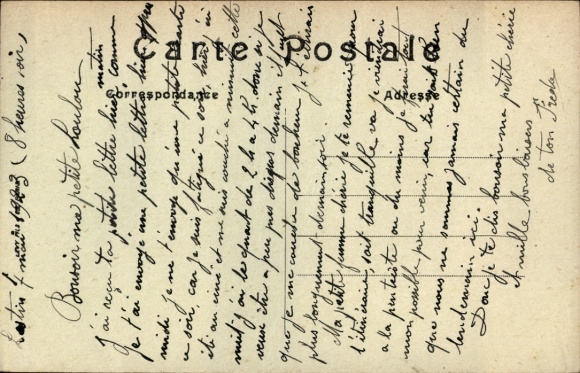 Carte Postale
Correspondance
Adresse
7 mai 1923 (8 heures soir,
Bonsoir ma petite Loulou
J'ai reçu ta petite lettre hier matin comme
je t'ai envoyé une petite lettre hier
midi je ne t'envoye qu'une petite carte
ce soir car je suis fatigué ce soir, hier j'ai
été au ciné et me suis couché a minuit cette
nuit j'ai le quart de 2 h a 4 h. donc si je
veux être a peu près dispos demain il faut
que je me couche de bonheur je t'écrirai
plus longuement demain soir.
Ma petit femme chérie je te remercie pour
l'itinéraire, soit tranquille va je viendrai
a la pentecôte ou du moins je ferai tout
mon possible pour venir, car tu sait bien
que nous ne sommes jamais certain du
lendemain ici.
Donc je te dis bonsoir ma petite chérie
et mille bons baisers
de ton Frede